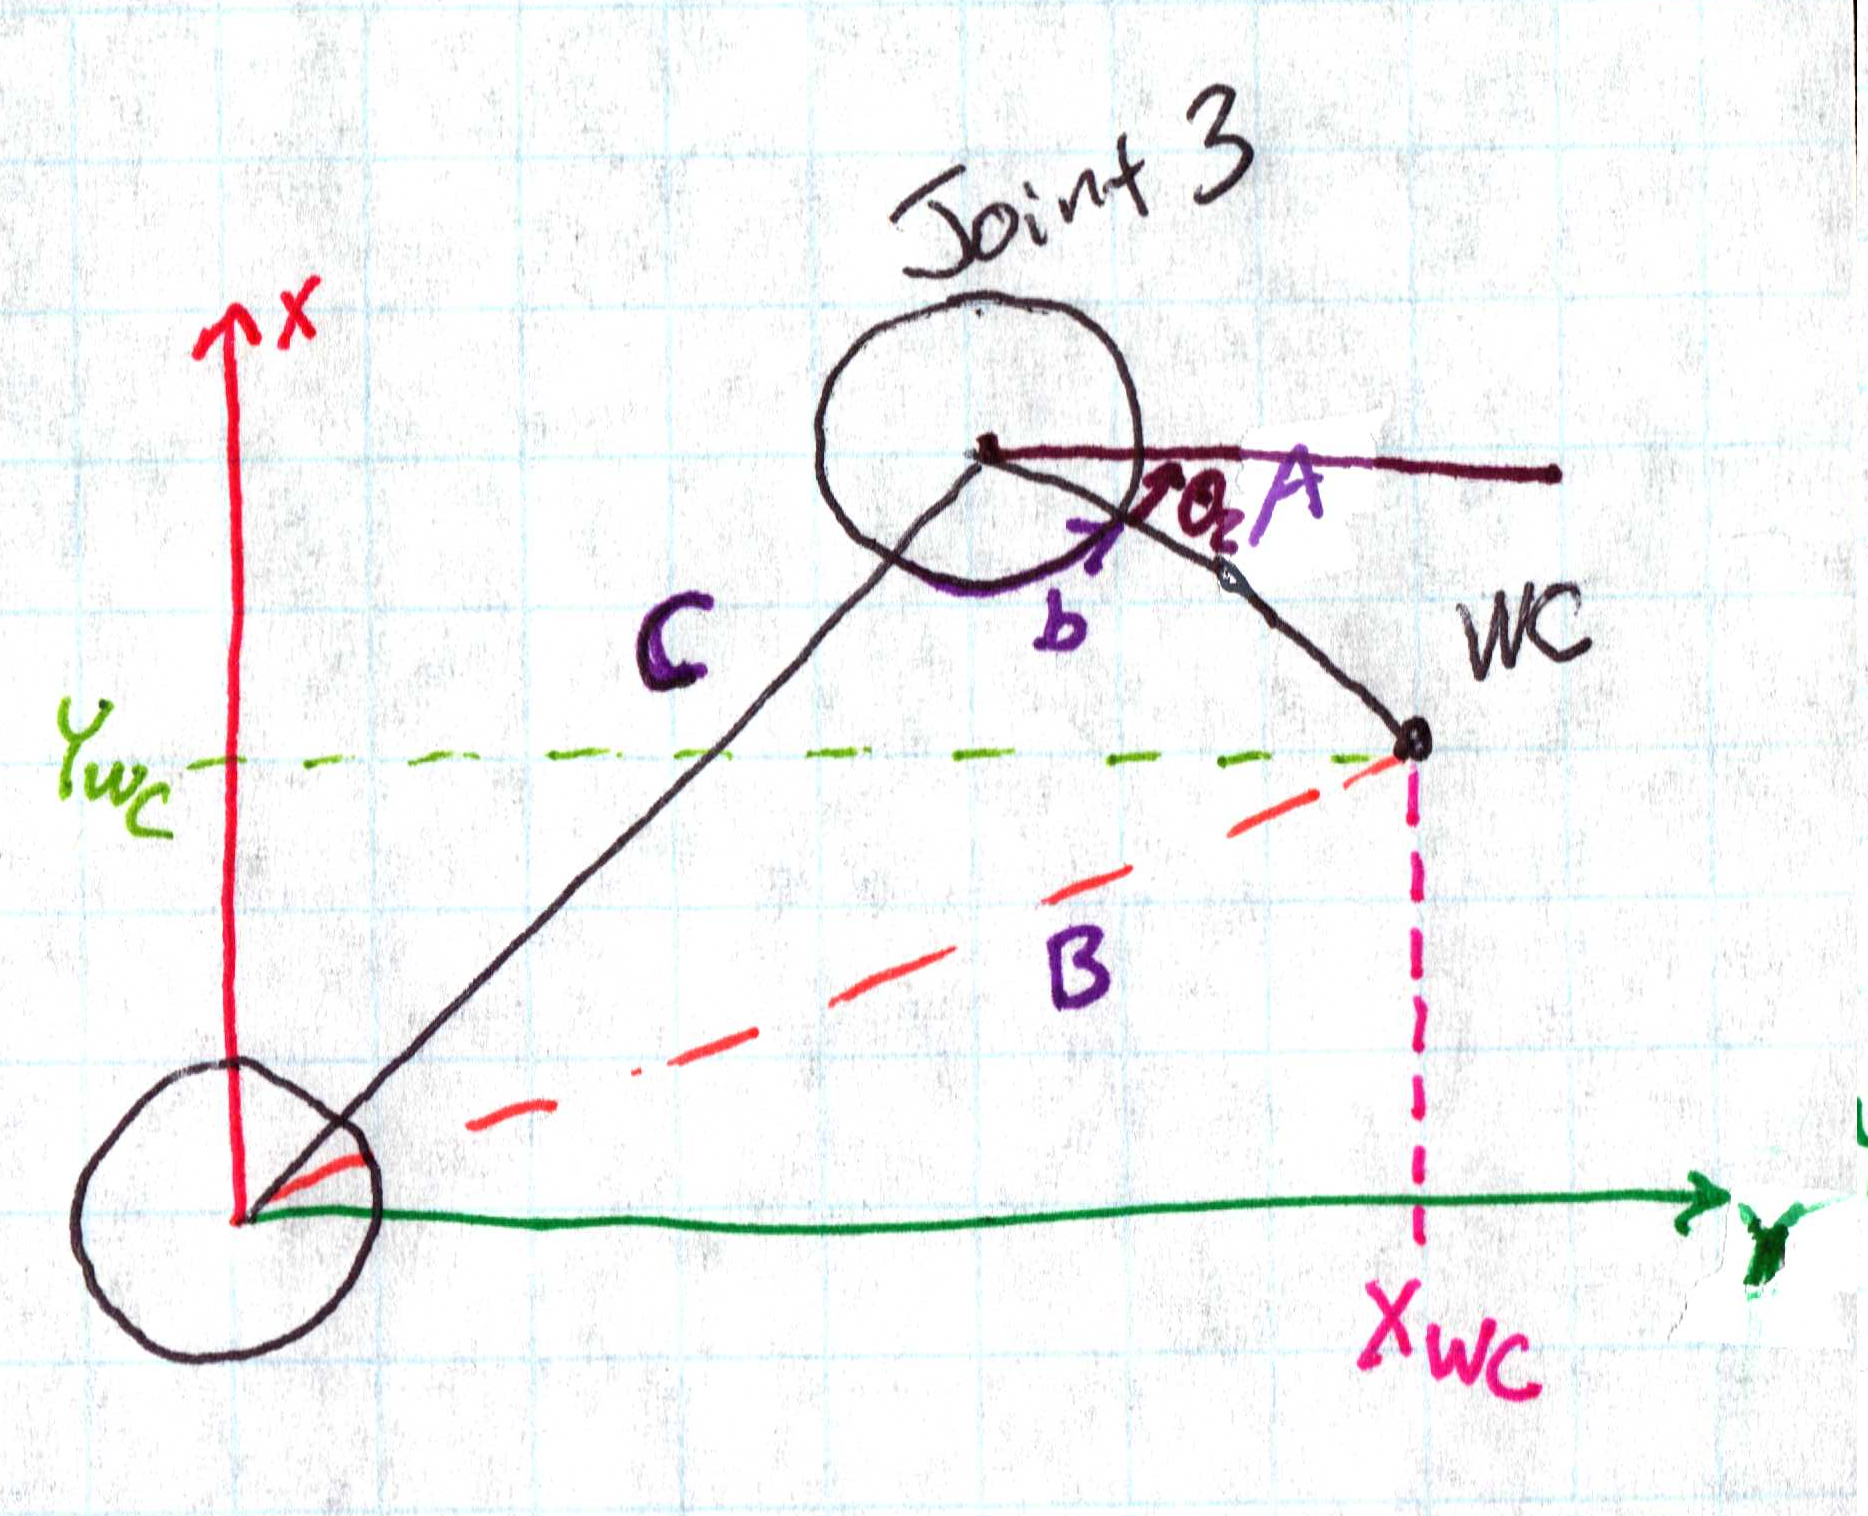 Joint 3
X
θ2
A
C
b
WC
YWC
B
Y
XWC